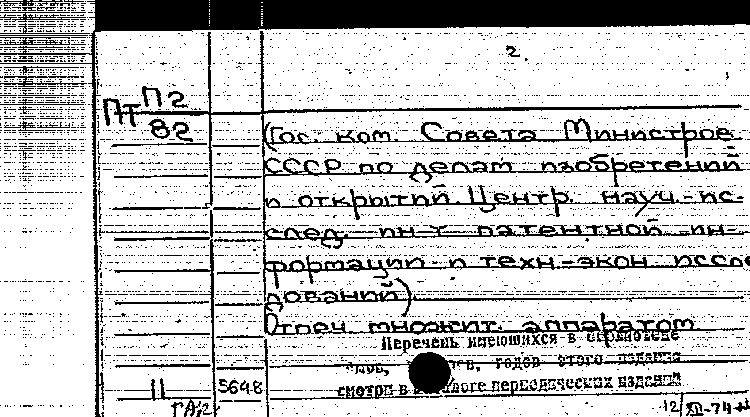 2.
Пт П2
82
(Гос. ком. Совета Министров
СССР по делам изобретений
и открытий. Центр. науч.-ис-
след. ин-т патентной ин-
формации и техн.-экон. иссле
дований).
Отпеч. множит. аппаратом
Перечень имеющихся в библиотеке
годов этого издания
смотри в каталоге периодических изданий
11
5648
12/XII-74